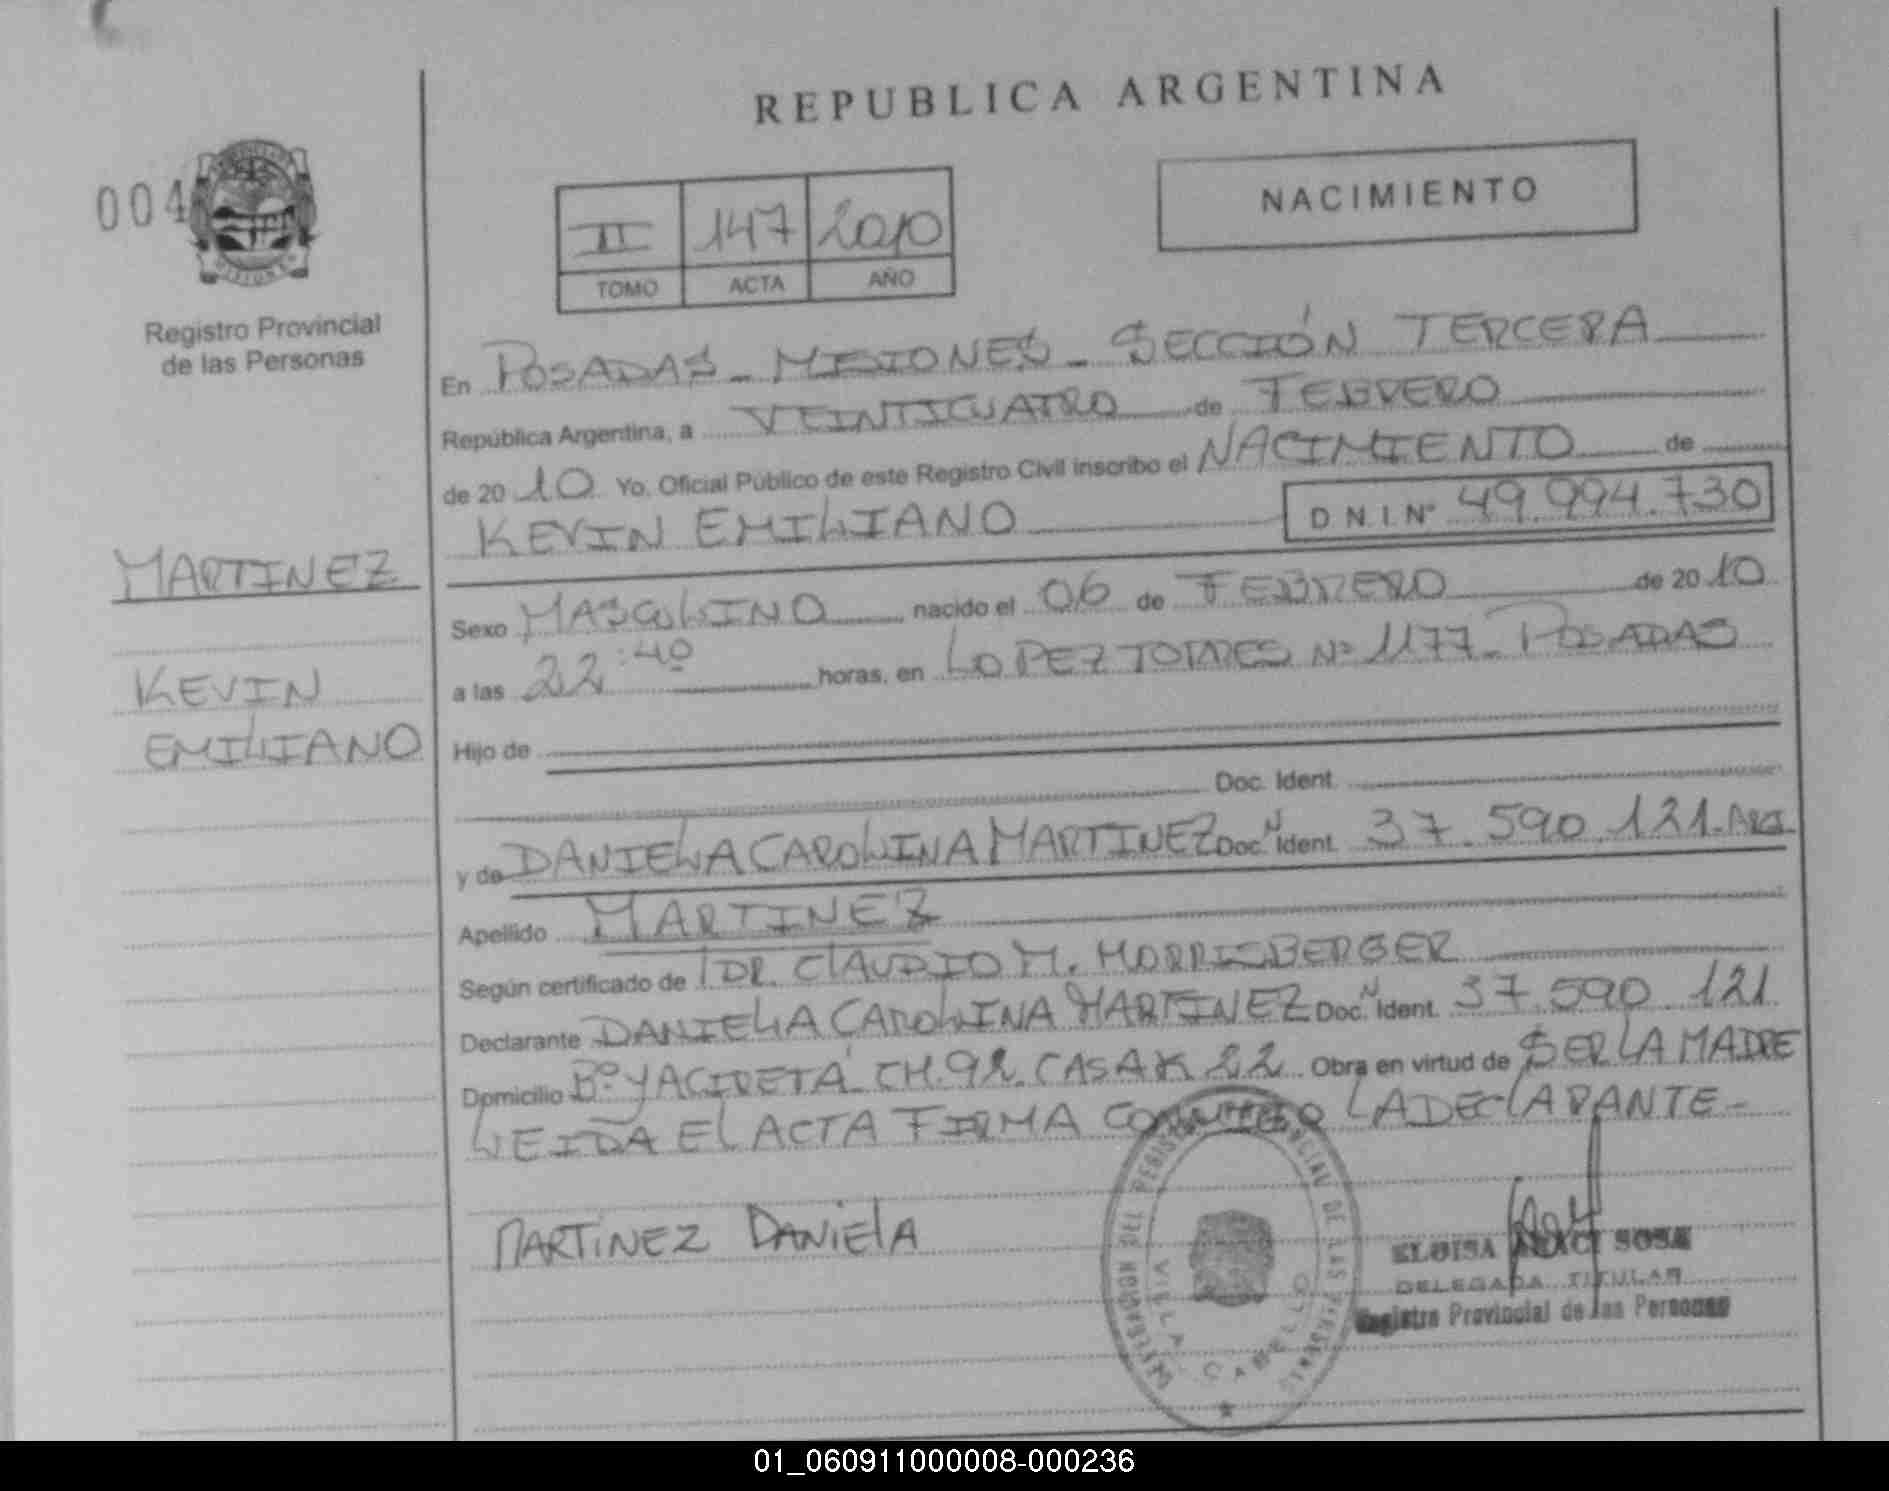 REPUBLICA ARGENTINA
004
NACIMIENTO
II 147 2010
TOMO ACTA AÑO
Registro Provincial
de las Personas
En POSADAS - MISIONES - SECCIÓN TERCERA
República Argentina, a VEINTICUATRO de FEBRERO
de 2010 Yo, Oficial Público de este Registro Civil inscribo el NACIMIENTO de
KEVIN EMILIANO D N.I. Nº 49.994.730
MARTINEZ
KEVIN
EMILIANO
Sexo MASCULINO nacido el 06 de FEBRERO de 2010
a las 22:40 horas, en LOPEZ TORRES Nº 1177 - POSADAS
Hijo de
Doc. Ident.
y de DANIELA CAROLINA MARTINEZ Doc. N Ident. 37.590.121-ARG
Apellido MARTINEZ
Según certificado de DR. CLAUDIO M. MORRISBERGER
Declarante DANIELA CAROLINA MARTINEZ Doc. N Ident. 37.590.121
Domicilio Bº YACIRETÁ CH.92 CASA K 22 Obra en virtud de SER LA MADRE
LEIDA EL ACTA FIRMA CONMIGO LA DECLARANTE -
MARTINEZ DANIELA
DEL REGISTRO PROVINCIAL DE LAS PERSONAS
VILLA CABELLO
ELOISA SOSA
DELEGADA TITULAR
Registro Provincial de las Personas
01_060911000008-000236